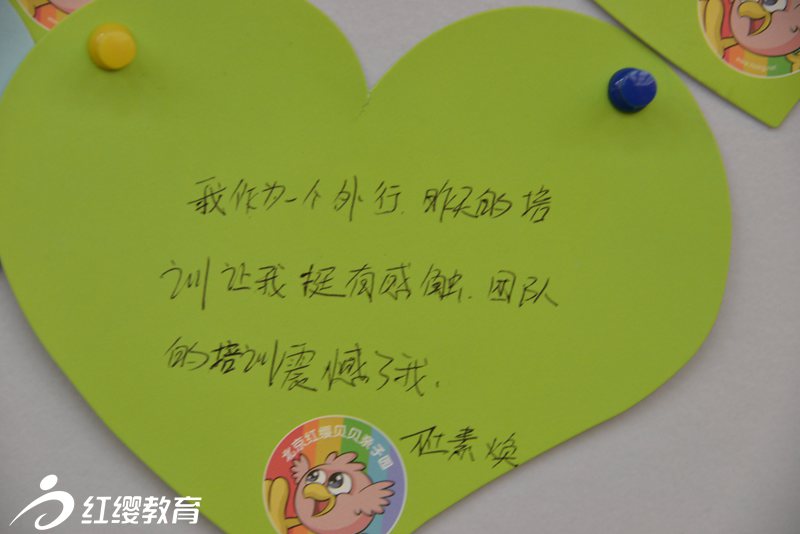 我作为一个外行.昨天的培
训让我挺有感触.团队
的培训震憾了我.
杜素焕
北京红缨贝贝亲子园
红缨教育